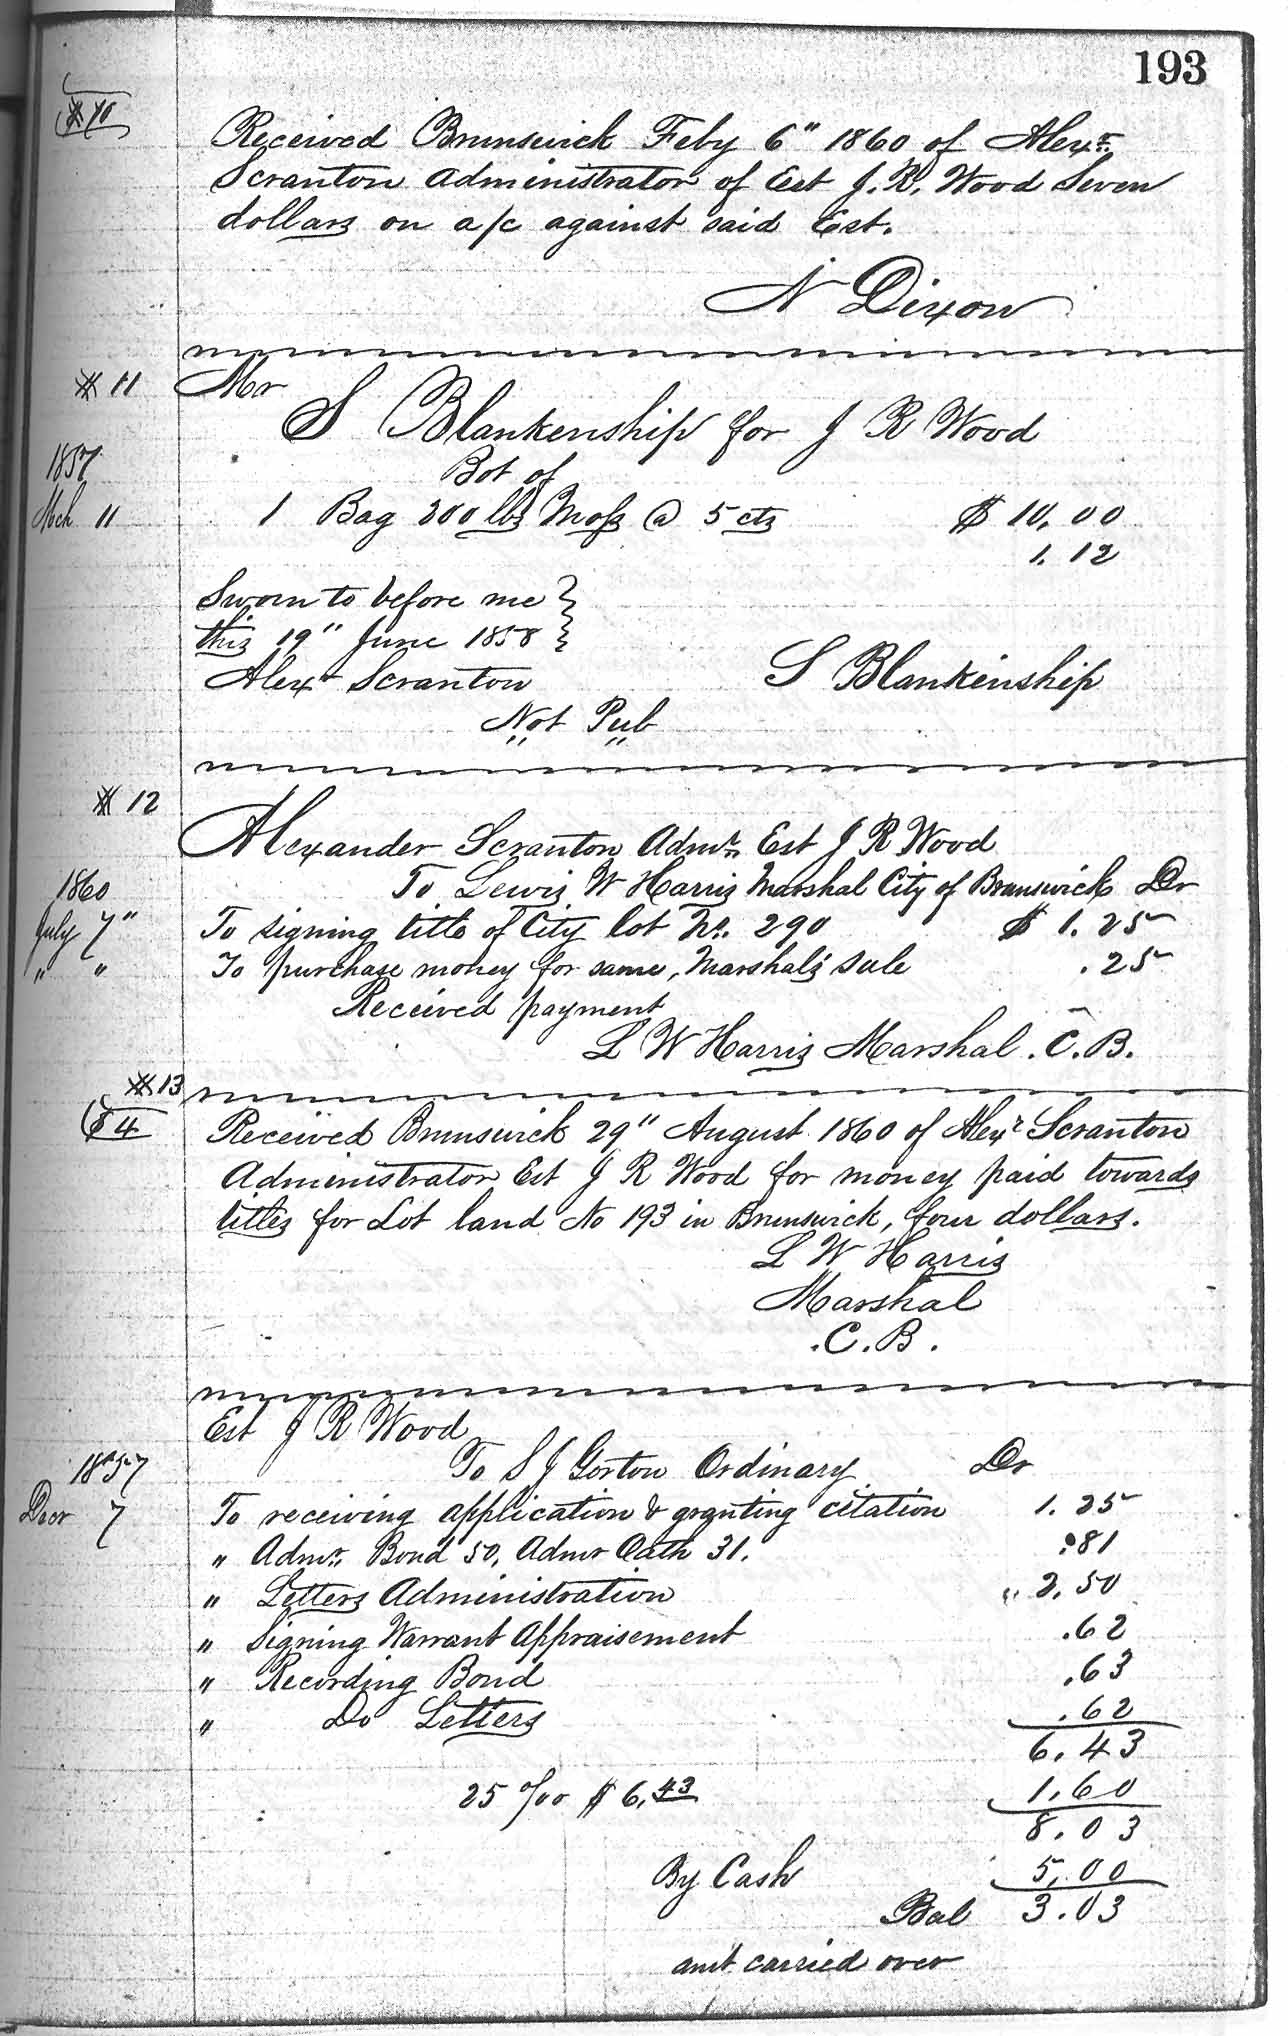 193
# 10
Received Brunswick Feby 6" 1860 of Alexr.
Scranton Administrator of Est J. R. Wood Seven
dollars on a/c against said Est.
N Dixon
# 11
Mr
S Blankenship for J R Wood
1857
Bot of
Mch 11 1 Bag 200 lbs Moss @ 5 cts $ 10.00
1.12
Sworn to before me
this 19" June 1858
Alexr Scranton
S Blankinship
Not Pub
# 12
Alexander Scranton Admr. Est J R Wood
1860 To Lewis W Harris Marshal City of Brunswick Dr
July 7" To signing title of City lot No. 290 $ 1.25
" " To purchase money for same, Marshals' sale .25
Received payment
L W Harris Marshal. C. B.
# 13
$4
Received Brunswick 29" August 1860 of Alexr Scranton
Administrator Est J R Wood for money paid towards
titles for Lot land No 193 in Brunswick, four dollars.
L W Harris
Marshal
.C. B.
Est J R Wood
1857 To S J Gorton Ordinary Dr
Decr 7 To receiving application & granting citation 1.25
" Admr. Bond 50, Admr Oath 31. .81
" Letters Administration 2.50
" Signing Warrant Appraisement .62
" Recording Bond .63
" Do Letters .62
6.43
25 %oo $ 6.43 1.60
8.03
By Cash 5.00
Bal 3.03
amt carried over